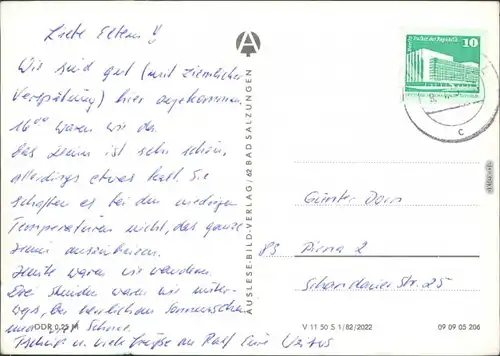 Liebe Eltern!
Wir sind gut (mit ziemlicher
Verspätung) hier angekommen
16⁰⁰ waren wir da.
Das Heim ist sehr schön,
allerdings etwas kalt. Sie
schaffen es bei den niedrigen
Temperaturen nicht, das ganze
Heim auszuheizen.
Heute waren wir wandern.
Drei Stunden waren wir unter-
wegs, bei herrlichem Sonnenschein
und Schnee.
Tschüß u. viele Grüße an Ralf
DDR 0,25 M
AUSLESE-BILD-VERLAG/62 BAD SALZUNGEN
A
Palast der Republik
10
c
Günter Dorn
83 Pirna 2
Schandauer Str. 25
V 11 50 S 1/82/2022
09 09 05 206